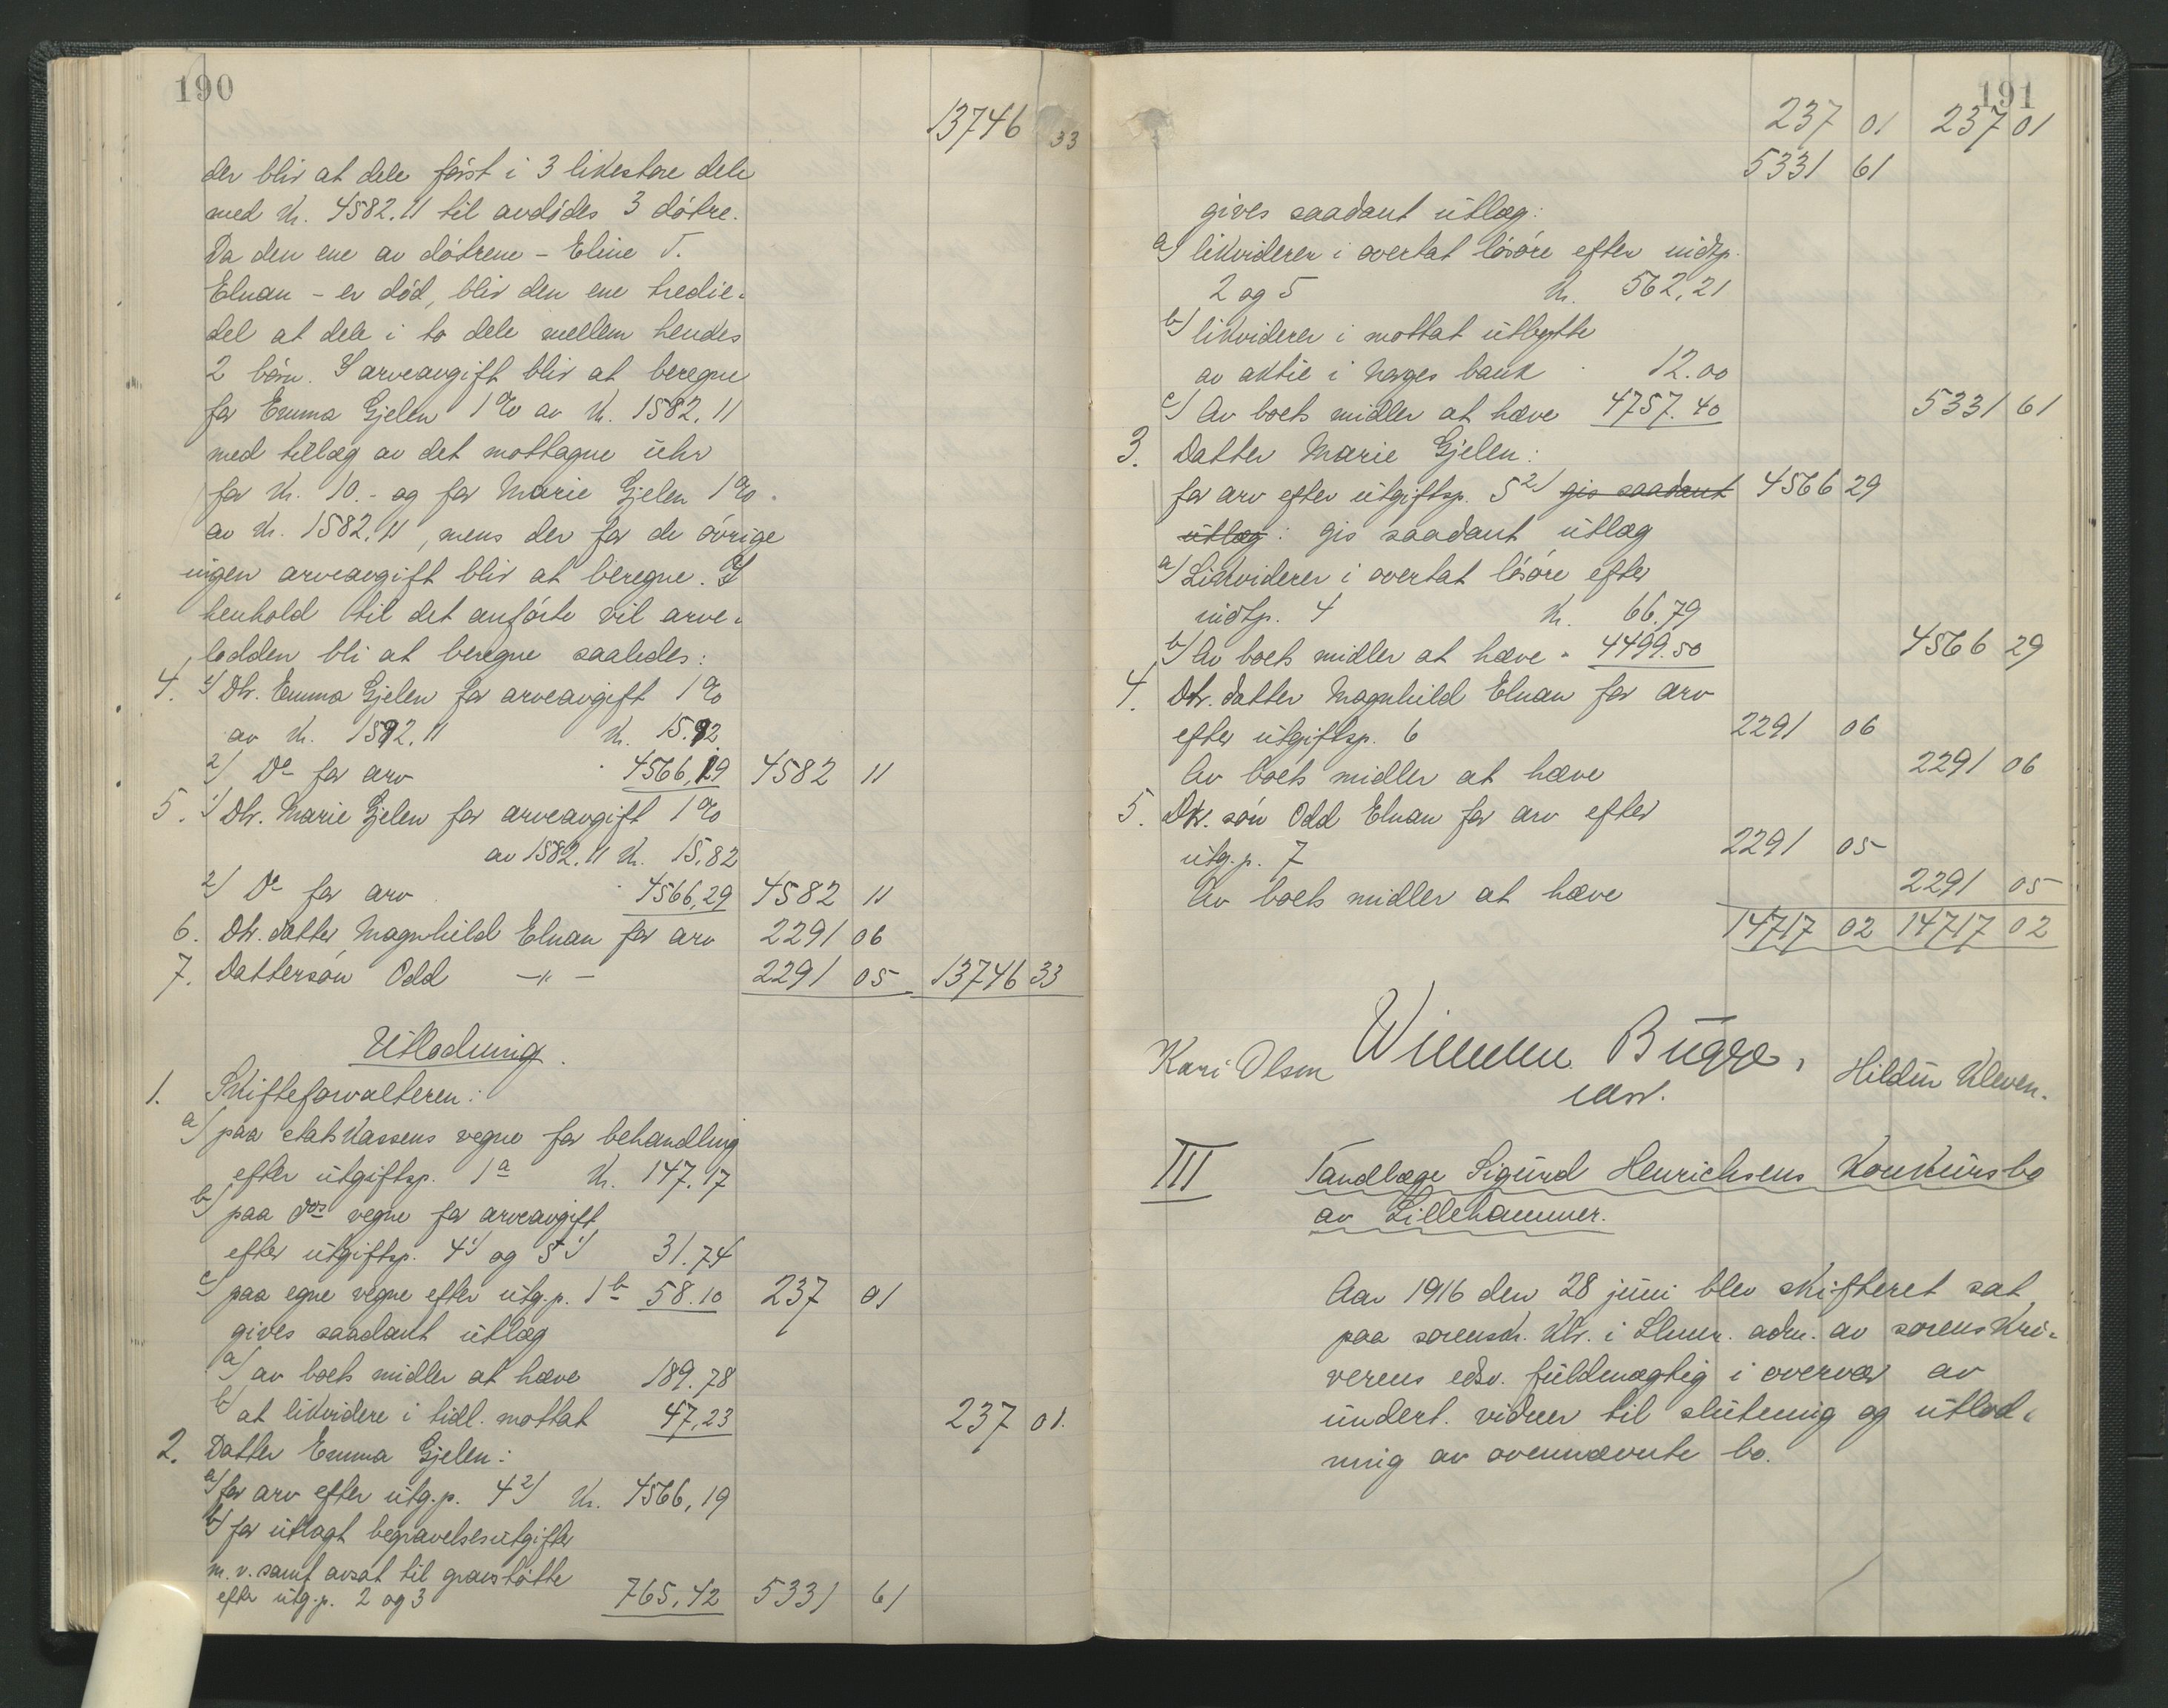 190
13746 33
der blir at dele først i 3 likestore dele
med kr. 4582.11 til avdødes 3 døtre.
Da den ene av døtrene - Eline T.
Elnan - er død, blir den ene tredie-
del at dele i to dele mellem hendes
2 børn. I arveavgift blir at beregne
for Emma Gjelen 1 % av kr. 1582.11
med tillæg av det mottagne uhr
for kr. 10.- og for Marie Gjelen 1 %
av kr. 1582.11, mens der for de øvrige
ingen arveavgift blir at beregne. I
henhold til det anførte vil arve-
lodden bli at beregne saaledes:
4. 1) Dtr. Emma Gjelen for arveavgift 1 %
av kr. 1592.11 kr. 15.92
2) Do for arv " 4566,19 4582 11
5. 1) Dtr. Marie Gjelen for arveavgift 1 %
av 1582.11 kr. 15,82
2) Do for arv " 4566,29 4582 11
6. Dtr. datter Magnhild Elnan for arv 2291 06
7. Dattersøn Odd -"- 2291 05 13746 33
Utlodning.
1. Skifteforvalteren:
a) paa statskassens vegne for behandling
efter utgiftsp. 1a kr. 147.17
b) paa dos vegne for arveavgift
efter utgiftsp. 4 1) og 5 1) 31.74
c) paa egne vegne efter utg.p. 1b 58.10 237 01
gives saadant utlæg
a) av boets midler at hæve 189.78
b) at likvidere i tidl. mottat 47,23 237 01.
2. Datter Emma Gjelen:
a) for arv efter utg.p. 4 2) kr. 4566,19
b) for utlagt begravelsesutgifter
m.v. samt avsat til gravstøtte
efter utg.p. 2 og 3 765,42 5331 61
191
237 01 237 01
5331 61
gives saadant utlæg:
a) likviderer i overtat løsøre efter indtp.
2 og 5 kr. 562,21
b) likviderer i mottat utbytte
av aktie i Norges bank " 12.00
c) Av boets midler at hæve 4757.40 5331 61
3. Datter Marie Gjelen:
for arv efter utgiftsp. 5 2) gis saadant 4566 29
utlæg: gis saadant utlæg
a) Likviderer i overtat løsøre efter
indtp. 4 kr. 66.79
b) Av boets midler at hæve " 4499.50 4566 29
4. Dtr. datter Magnhild Elnan for arv
efter utgiftsp. 6 2291 06
Av boets midler at hæve 2291 06
5. Dtr. søn Odd Elnan for arv efter
utg.p. 7 2291 05
Av boets midler at hæve 2291 05
14717 02 14717 02
Kari Olsen Bugge, Hildur Kleven.
edsv.
III Tandlæge Sigurd Henrichsens konkursbo
av Lillehammer.
Aar 1916 den 28 juni blev skifteret sat
paa sorenskr. ktr. i Lhmr. adm. av sorenskri-
verens edsv. fuldmægtig i overvær av
undert. vidner til slutning og utlod-
ning av ovennævnte bo.